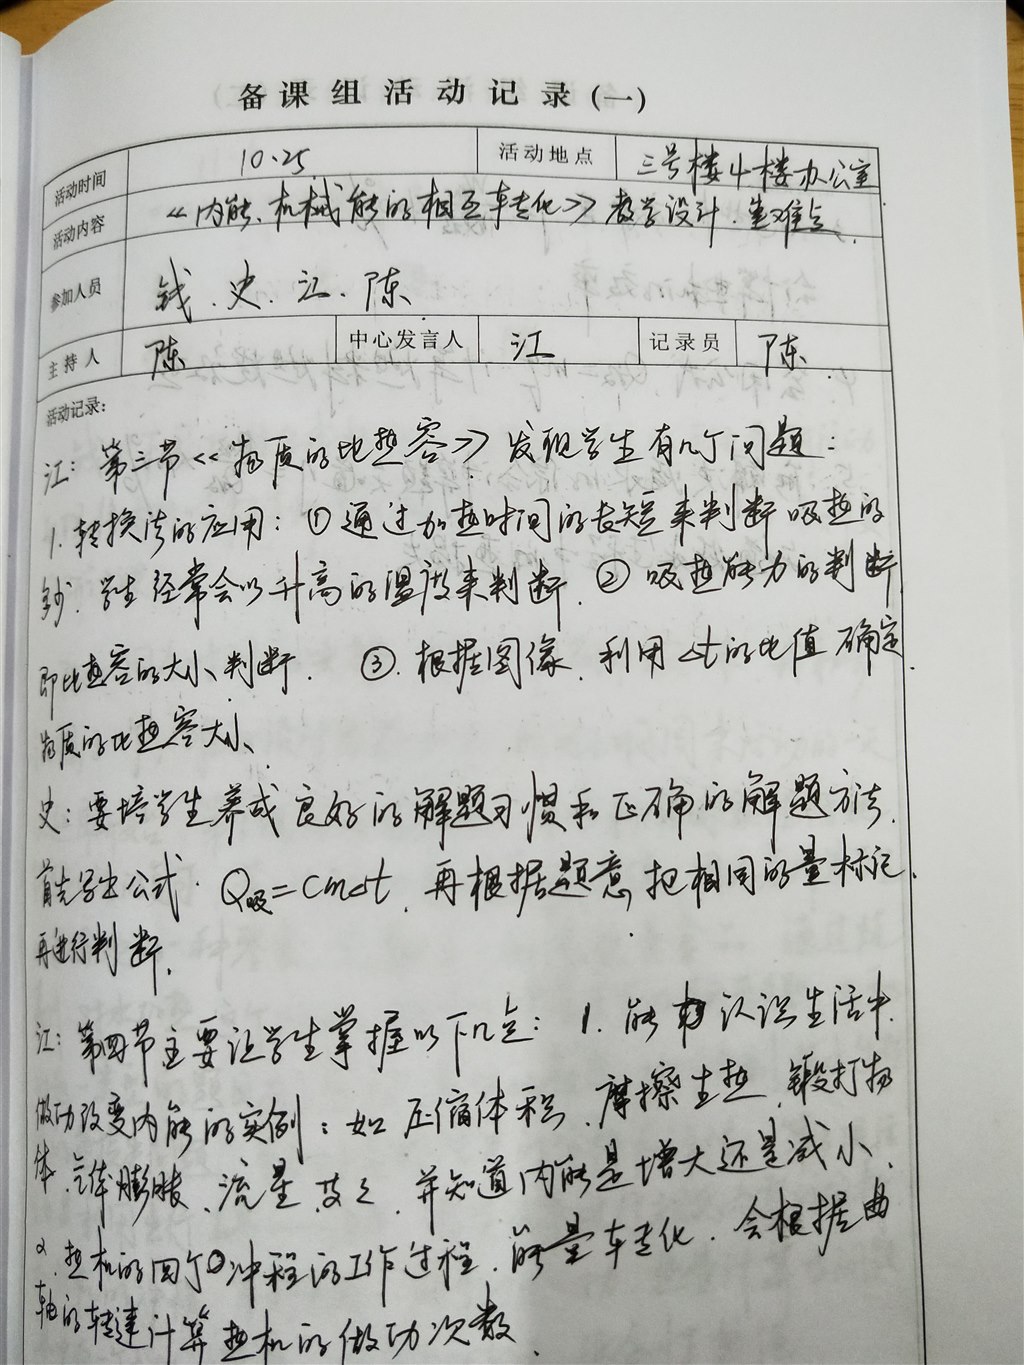 备课组活动记录(一)
活动时间 10.25 活动地点 三号楼4楼办公室
活动内容 《内能、机械能的相互转化》教学设计.重难点.
参加人员 钱、史、江、陈
主持人 陈 中心发言人 江 记录员 陈.
活动记录:
江: 第三节《物质的比热容》发现学生有几个问题:
1.转换法的应用: ①通过加热时间的长短来判断吸热的
多少. 学生经常会以升高的温度来判断. ②吸热能力的判断
即比热容的大小判断. ③.根据图像.利用△t的比值确定
物质的比热容大小.
史: 要培学生养成良好的解题习惯和正确的解题方法.
首先写出公式. Q吸=cm△t. 再根据题意,把相同的量标记.
再进行判断.
江: 第四节主要让学生掌握以下几点: 1. 能够认识生活中
做功改变内能的实例: 如压缩体积、摩擦生热、锻打物
体、气体膨胀、流星 并知道内能是增大还是减小.
2.热机的四个冲程的工作过程.能量转化.会根据曲
轴的转速计算热机的做功次数.